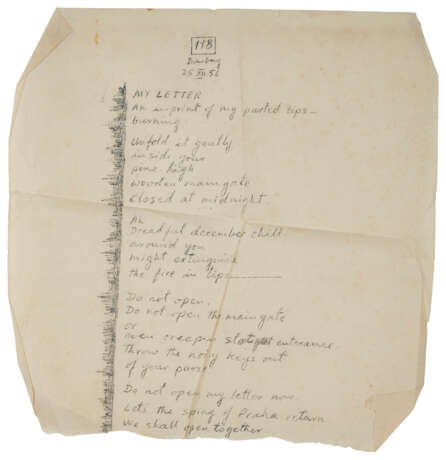 118
Bombay
25 XII 56
MY LETTER
An inprint of my parted lips—
burning.
Unfold it gently
inside your
pine-high
wooden main gate
closed at midnight.
Ah
Dreadful december chill
around you
might extinguise
the fire in lips
Do not open.
Do not open the main gate
or
even creaper entrance.
throw the noisy keys out
of your purse
Do not open my letter now.
Lets the sping of Praha return
We shall open together